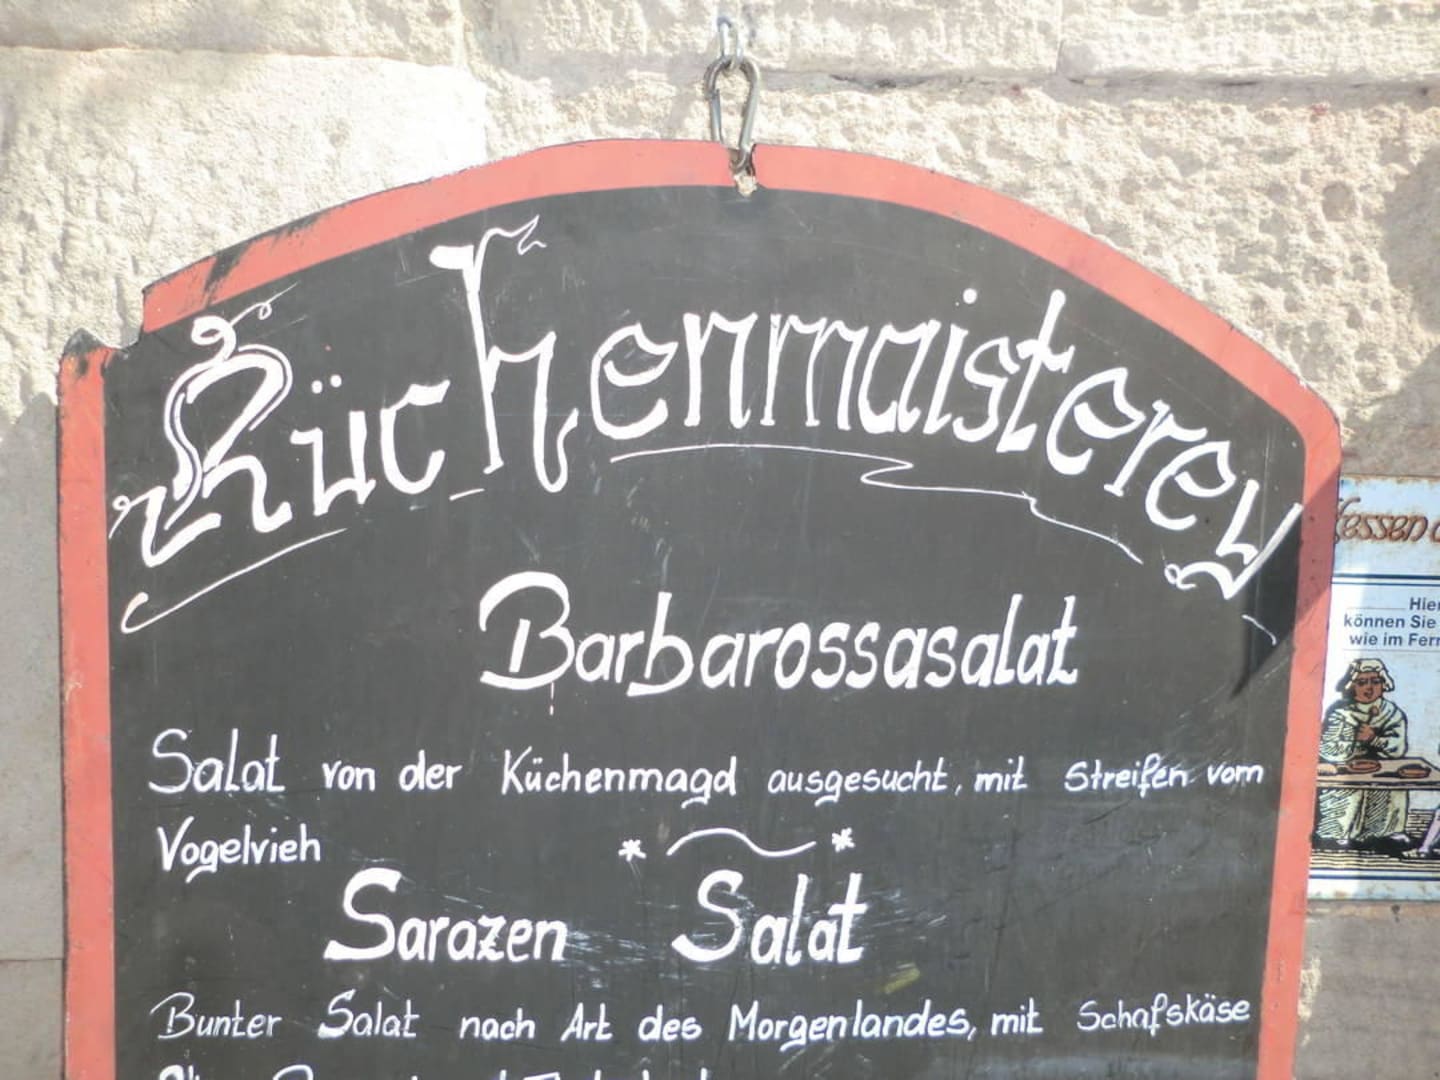 Küchenmaisterey
Barbarossasalat
Salat von der Küchenmagd ausgesucht, mit Streifen vom
Vogelvieh
Sarazen Salat
Bunter Salat nach Art des Morgenlandes, mit Schafskäse
Hier
können Sie
wie im